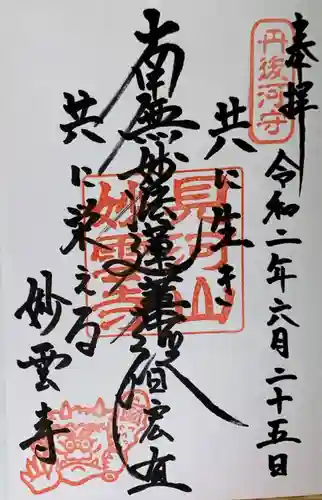 奉拝
丹後河守
令和二年六月二十五日
共に生き
南無妙法蓮華経
共に栄える
妙雲寺
見河山
妙雲寺